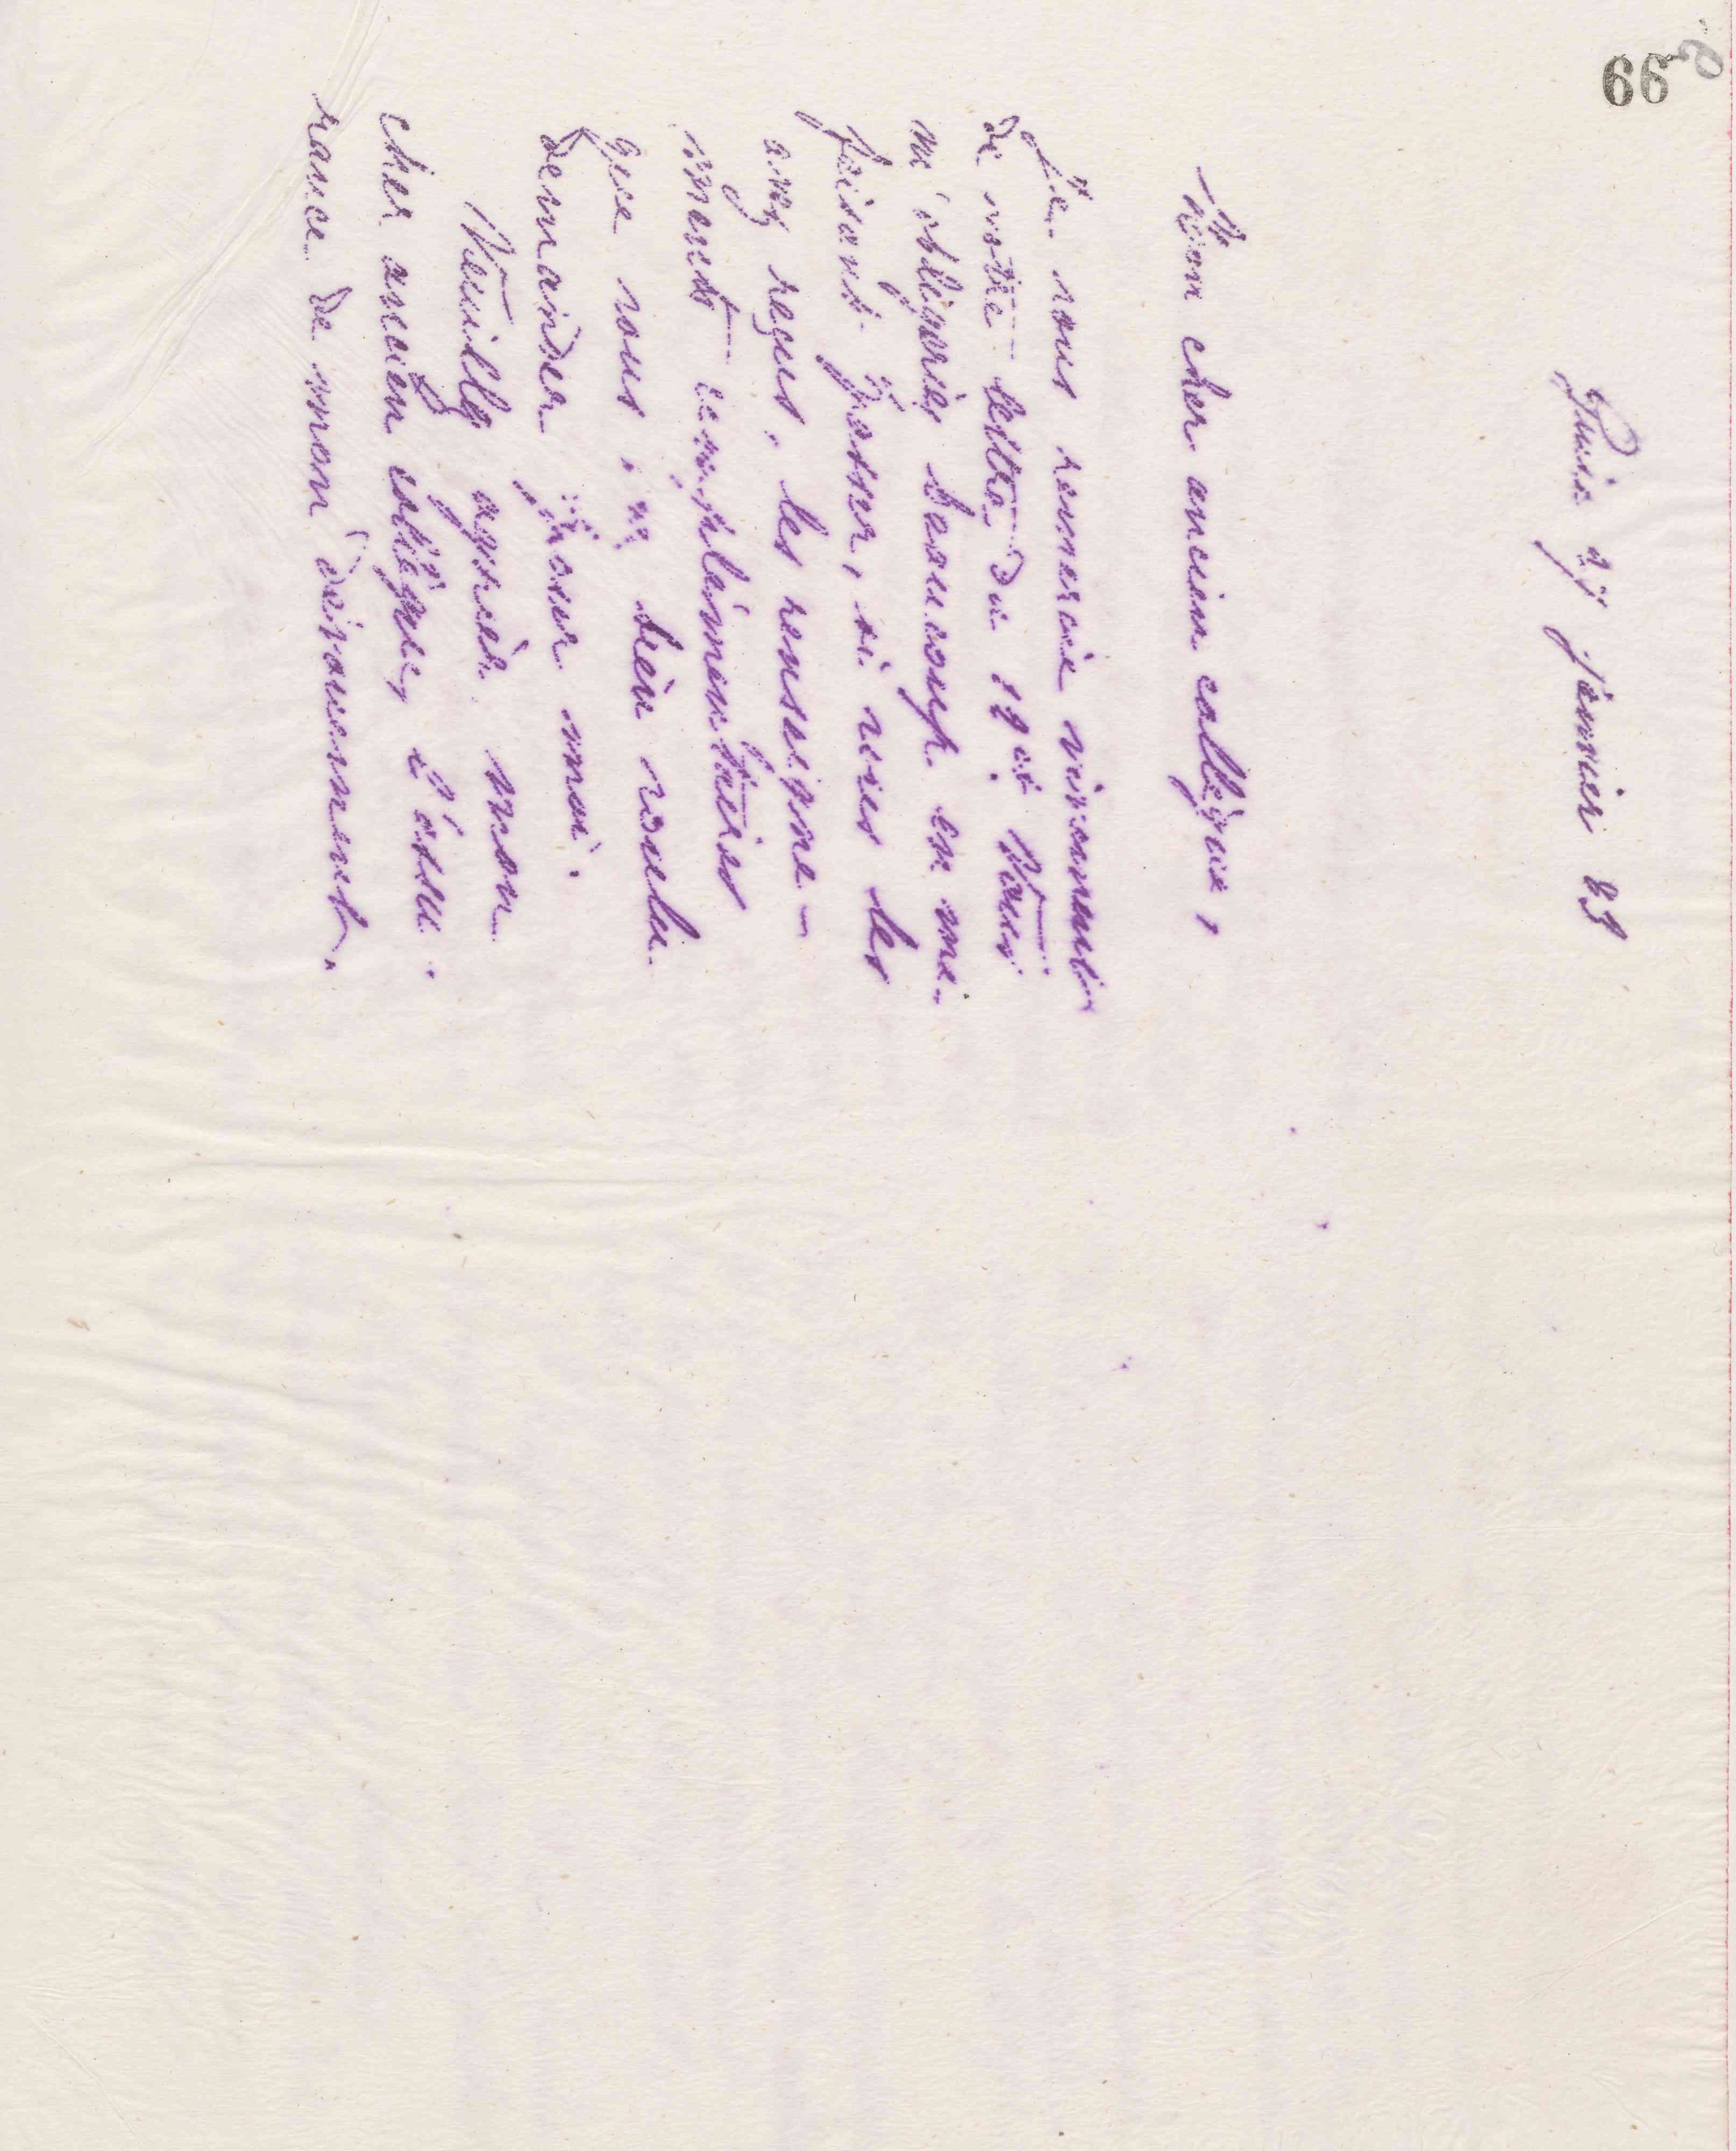 66
Paris 27 janvier 83
Mon cher ancien collègue,
Je vous remercie vivement
de votre lettre du 19 ct. Vous
m'obligeriez beaucoup en me
faisant passer, si vous les
avez reçus, les renseigne-
ments complémentaires
que vous avez bien voulu
demander pour moi.
Veuillez agréer mon
cher ancien collègue, l'assu-
rance de mon dévouement.